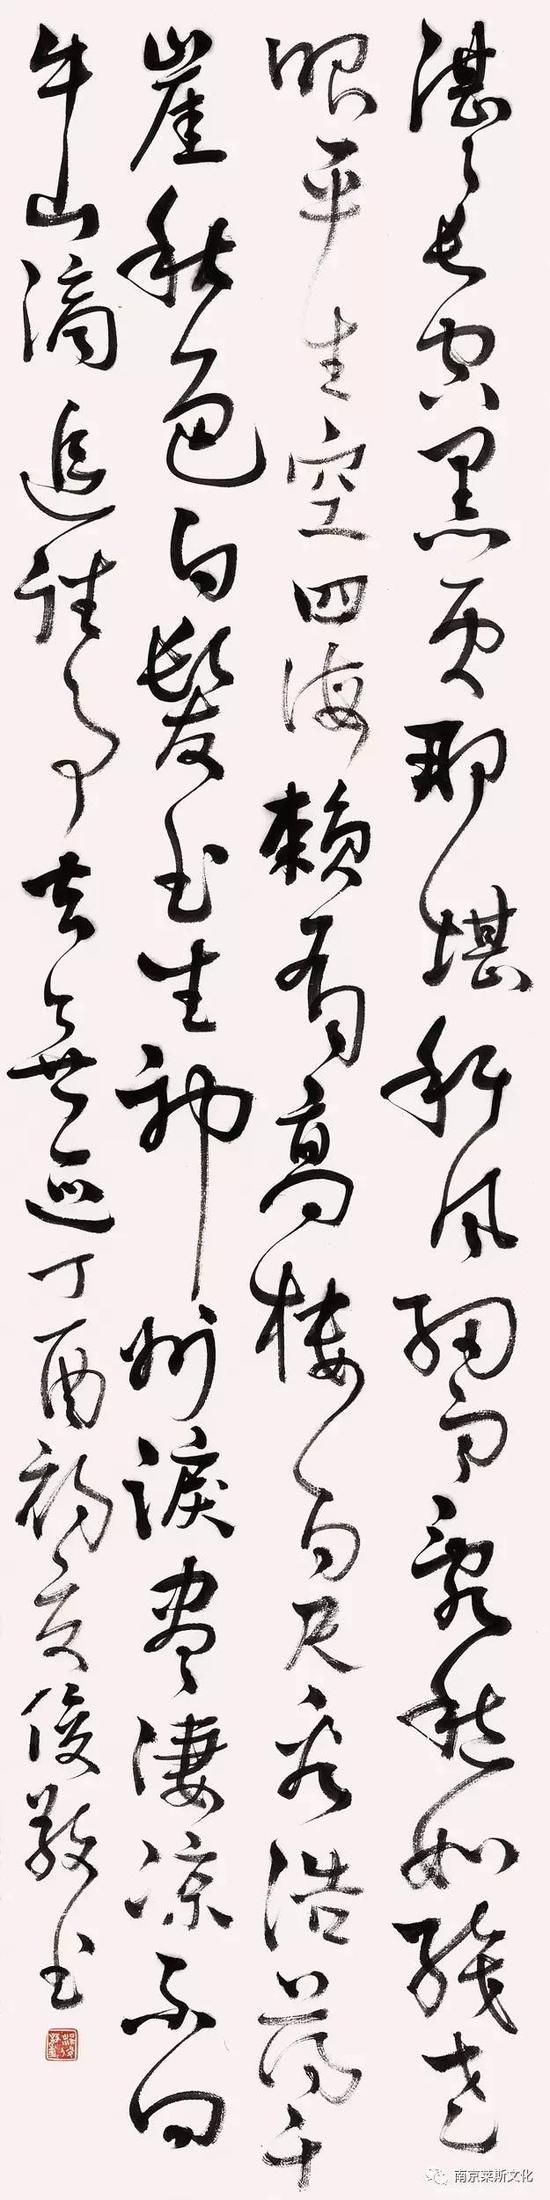 湛湛長空黑更那堪斜風細雨亂愁如織老
眼平生空四海賴有高樓百尺看浩蕩千
崖秋色白髮書生神州淚盡淒涼不向
牛山滴追往事去無迹丁酉初夏俊書
南京莱斯文化